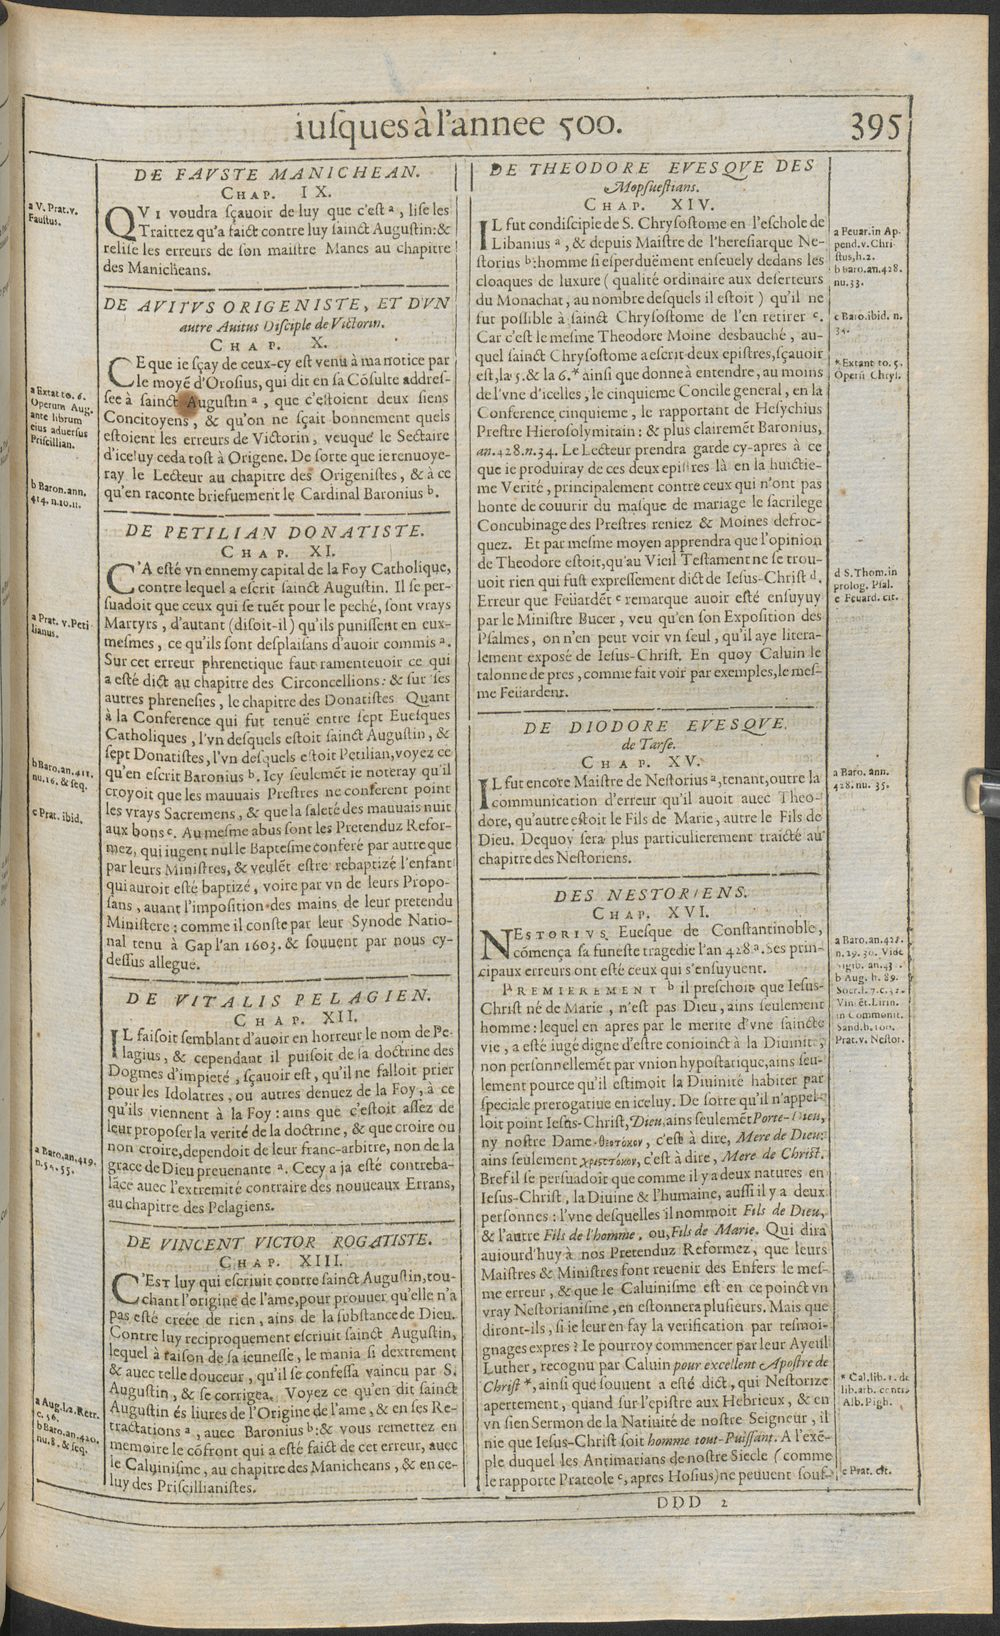 iusques à l'annee 500.
395
DE FAVSTE MANICHEAN.
CHAP. IX.
a V. Prat. v.
Faustus.
QVI voudra sçauoir de luy que c'est a, lise les
Traittez qu'a faict contre luy sainct Augustin: &
relise les erreurs de son maistre Manes au chapitre
des Manicheans.
DE AVITVS ORIGENISTE, ET D'VN
autre Auitus Disciple de Victorin.
CHAP. X.
CE que ie sçay de ceux-cy est venu à ma notice par
le moyē d'Orosius, qui dit en sa Cōsulte addres-
see à sainct Augustin a, que c'estoient deux siens
Concitoyens, & qu'on ne sçait bonnement quels
estoient les erreurs de Victorin, veuque le Sectaire
d'iceluy ceda tost à Origene. De sorte que ie renuoye-
ray le Lecteur au chapitre des Origenistes, & à ce
qu'en raconte briefuement le Cardinal Baronius b.
a Extat to. 6.
Operum Aug.
ante librum
eius aduersus
Priscillian.
b Baron. ann.
414. n. 10. 11.
DE PETILIAN DONATISTE.
CHAP. XI.
C'A esté vn ennemy capital de la Foy Catholique,
contre lequel a escrit sainct Augustin. Il se per-
suadoit que ceux qui se tuēt pour le peché, sont vrays
Martyrs, d'autant (disoit-il) qu'ils punissent en eux-
mesmes, ce qu'ils sont desplaisans d'auoir commis a.
Sur cet erreur phrenetique faut ramenteuoir ce qui
a esté dict au chapitre des Circoncellions: & sur ses
autres phrenesies, le chapitre des Donatistes. Quant
à la Conference qui fut tenuë entre sept Euesques
Catholiques, l'vn desquels estoit sainct Augustin, &
sept Donatistes, l'vn desquels estoit Petilian, voyez ce
qu'en escrit Baronius b. Icy seulemēt ie noteray qu'il
croyoit que les mauuais Prestres ne conferent point
les vrays Sacremens, & que la saleté des mauuais nuit
aux bons c. Au mesme abus sont les Pretenduz Refor-
mez, qui iugent nulle le Baptesme conferé par autre que
par leurs Ministres, & veulēt estre rebaptizé l'enfant
qui auroit esté baptizé, voire par vn de leurs Propo-
sans, auant l'imposition des mains de leur pretendu
Ministere: comme il conste par leur Synode Natio-
nal tenu à Gap l'an 1603. & souuent par nous cy-
dessus allegué.
a Prat. v. Peti
lianus.
b Baro. an. 411.
nu. 16. & seq.
c Prat. ibid.
DE VITALIS PELAGIEN.
CHAP. XII.
IL faisoit semblant d'auoir en horreur le nom de Pe-
lagius, & cependant il puisoit de sa doctrine des
Dogmes d'impieté, sçauoir est, qu'il ne falloit prier
pour les Idolatres, ou autres denuez de la Foy, à ce
qu'ils viennent à la Foy: ains que c'estoit assez de
leur proposer la verité de la doctrine, & que croire ou
non croire, dependoit de leur franc-arbitre, non de la
grace de Dieu preuenante a. Cecy a ja esté contreba-
lācé auec l'extremité contraire des nouueaux Errans,
au chapitre des Pelagiens.
a Baro. an. 419.
DE VINCENT VICTOR ROGATISTE.
CHAP. XIII.
C'EST luy qui escriuit contre sainct Augustin, tou-
chant l'origine de l'ame, pour prouuer qu'elle n'a
pas esté creée de rien, ains de la substance de Dieu.
Contre luy reciproquement escriuit sainct Augustin,
lequel à raison de sa ieunesse, le mania si dextrement
& auec telle douceur, qu'il se confessa vaincu par S.
Augustin, & se corrigea. Voyez ce qu'en dit sainct
Augustin és liures de l'Origine de l'ame, & en ses Re-
tractations a, auec Baronius b: & vous remettez en
memoire le cōfront qui a esté faict de cet erreur, auec
le Caluinisme, au chapitre des Manicheans, & en ce-
luy des Priscillianistes.
a Aug. l. 2. Retr.
c. 56.
b Baro. an. 420.
nu. 8. & seq.
DE THEODORE EVESQVE DES
Mopsuestians.
CHAP. XIV.
IL fut condisciple de S. Chrysostome en l'eschole de
Libanius a, & depuis Maistre de l'heresiarque Ne-
storius b: homme si esperduëment enseuely dedans les
cloaques de luxure (qualité ordinaire aux deserteurs
du Monachat, au nombre desquels il estoit) qu'il ne
fut possible à sainct Chrysostome de l'en retirer c.
Car c'est le mesme Theodore Moine desbauché, au-
quel sainct Chrysostome a escrit deux epistres, sçauoir
est, la 5. & la 6.* ainsi que donne à entendre, au moins
de l'vne d'icelles, le cinquieme Concile general, en la
Conference cinquieme, le rapportant de Hesychius
Prestre Hierosolymitain: & plus clairemēt Baronius,
an. 428. n. 34. Le Lecteur prendra garde cy-apres à ce
que ie produiray de ces deux epistres là en la huictie-
me Verité, principalement contre ceux qui n'ont pas
honte de couurir du masque de mariage le sacrilege
Concubinage des Prestres reniez & Moines defroc-
quez. Et par mesme moyen apprendra que l'opinion
de Theodore estoit, qu'au Vieil Testament ne se trou-
uoit rien qui fust expressement dict de Iesus-Christ d.
Erreur que Feüardēt e remarque auoir esté ensuyuy
par le Ministre Bucer, veu qu'en son Exposition des
Psalmes, on n'en peut voir vn seul, qu'il aye litera-
lement exposé de Iesus-Christ. En quoy Caluin le
talonne de pres, comme fait voir par exemples, le mes-
me Feüardent.
a Feuar. in Ap-
pend. v. Chri-
stus, h. 2.
b Baro. an. 428.
nu. 33.
c Baro. ibid. n.
34.
* Extant to. 5.
Operū Chrys.
d S. Thom. in
prolog. Psal.
e Feuard. cit.
DE DIODORE EVESQVE
de Tarse.
CHAP. XV.
IL fut encore Maistre de Nestorius a, tenant, outre la
communication d'erreur qu'il auoit auec Theo-
dore, qu'autre estoit le Fils de Marie, autre le Fils de
Dieu. Dequoy sera plus particulierement traicté au
chapitre des Nestoriens.
a Baro. ann.
428. nu. 35.
DES NESTORIENS.
CHAP. XVI.
NESTORIVS Euesque de Constantinoble,
cōmença sa funeste tragedie l'an 428 a. Ses prin-
cipaux erreurs ont esté ceux qui s'ensuyuent.
PREMIEREMENT b il preschoit que Iesus-
Christ né de Marie, n'est pas Dieu, ains seulement
homme: lequel en apres par le merite d'vne saincte
vie, a esté iugé digne d'estre conioinct à la Diuinité,
non personnellemēt par vnion hypostatique, ains seu-
lement pource qu'il estimoit la Diuinité habiter par
speciale prerogatiue en iceluy. De sorte qu'il n'appel-
loit point Iesus-Christ, Dieu, ains seulemēt Porte-Dieu,
ny nostre Dame θεοτόκον, c'est à dire, Mere de Dieu:
ains seulement χριστοτόκον, c'est à dire, Mere de Christ.
Bref il se persuadoit que comme il y a deux natures en
Iesus-Christ, la Diuine & l'humaine, aussi il y a deux
personnes: l'vne desquelles il nommoit Fils de Dieu,
& l'autre Fils de l'homme, ou, Fils de Marie. Qui dira
auiourd'huy à nos Pretenduz Reformez, que leurs
Maistres & Ministres font reuenir des Enfers le mes-
me erreur, & que le Caluinisme est en ce poinct vn
vray Nestorianisme, en estonnera plusieurs. Mais que
diront-ils, si ie leur en fay la verification par tesmoi-
gnages expres? Ie pourroy commencer par leur Ayeul
Luther, recognu par Caluin pour excellent Apostre de
Christ*, ainsi que souuent a esté dict, qui Nestorize
apertement, quand sur l'epistre aux Hebrieux, & en
vn sien Sermon de la Natiuité de nostre Seigneur, il
nie que Iesus-Christ soit homme tout-Puissant. A l'exē-
ple duquel les Antimarians de nostre Siecle (comme
le rapporte Prateole c, apres Hosius) ne peuuent souf-
a Baro. an. 428.
n. 29. 30. Vide
b Aug. h. 89.
Socr. l. 7. c. 32.
Vincēt. Lirin.
in Commonit.
Sand. h. 100.
Prat. v. Nestor.
* Cal. lib. 1. de
lib. arb. contra
Alb. Pigh.
c Prat. cit.
DDD 2